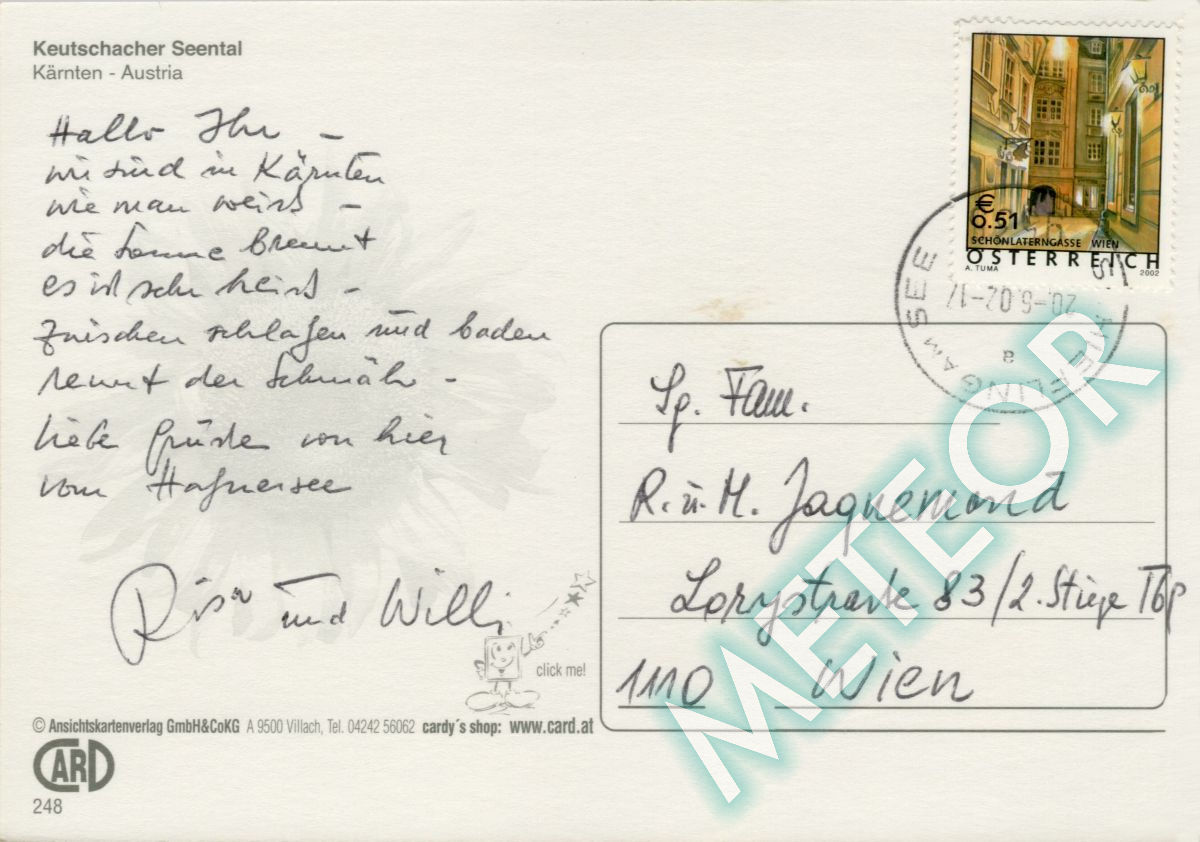 Keutschacher Seental
Kärnten - Austria
Hallo Ihr –
wir sind in Kärnten
wie man weiß –
die Sonne brennt
es ist sehr heiß –
zwischen schlafen und baden
rennt der Schmäh –
liebe Grüße von hier
vom Hafnersee
und Willi
click me!
© Ansichtskartenverlag GmbH&CoKG A 9500 Villach, Tel. 04242 56062 cardy´s shop: www.card.at
CARD
248
€
0.51
SCHÖNLATERNGASSE WIEN
ÖSTERREICH
A. TUMA 2002
AM SEE
20-6.02-17
a
Sg. Fam.
R. u. M. Jaquemond
Lorystraße 83/2. Stiege
1110 Wien
METEOR